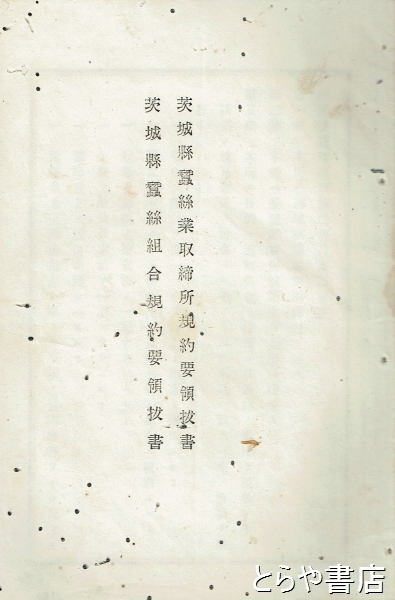 茨城縣蠶絲業取締所規約要領拔書
茨城縣蠶絲組合規約要領拔書
とらや書店